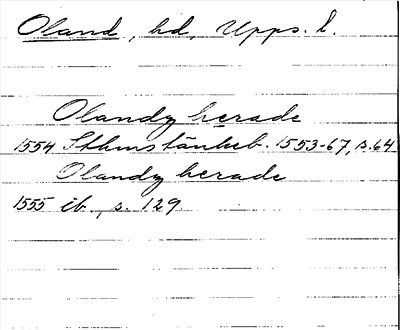 Oland, hd, Upps. l.
Olandz herade
1554 Sthms tänkeb. 1553-67, s. 64
Olandz herade
1555 ib., s. 129